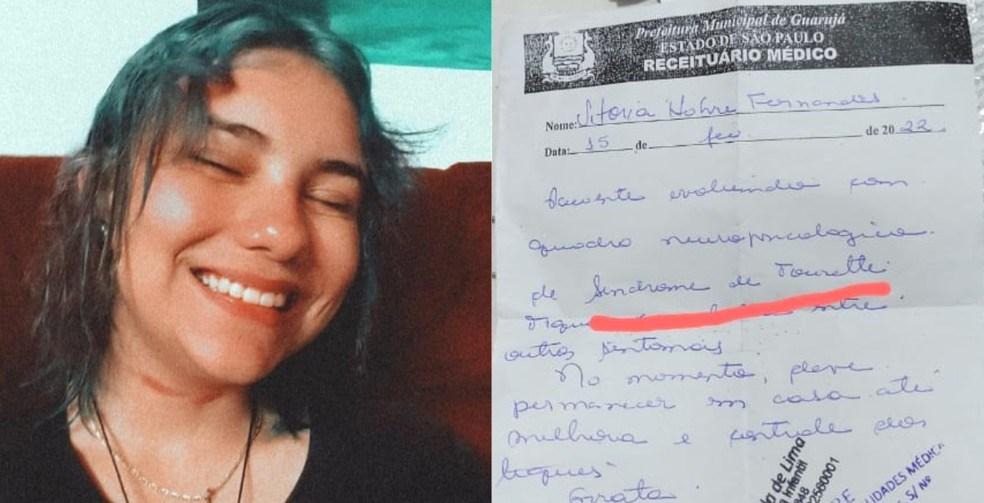 Prefeitura Municipal de Guarujá
ESTADO DE SÃO PAULO
RECEITUÁRIO MÉDICO
Nome: Vitoria Nobre Fernandes
Data: 15 de fev de 2022
Paciente evoluindo com
quadro neuropsicologico
de Sindrome de Tourette
outros sintomas
No momento, deve
permanecer em casa até
melhora e controle dos
tiques
Grata
de Lima